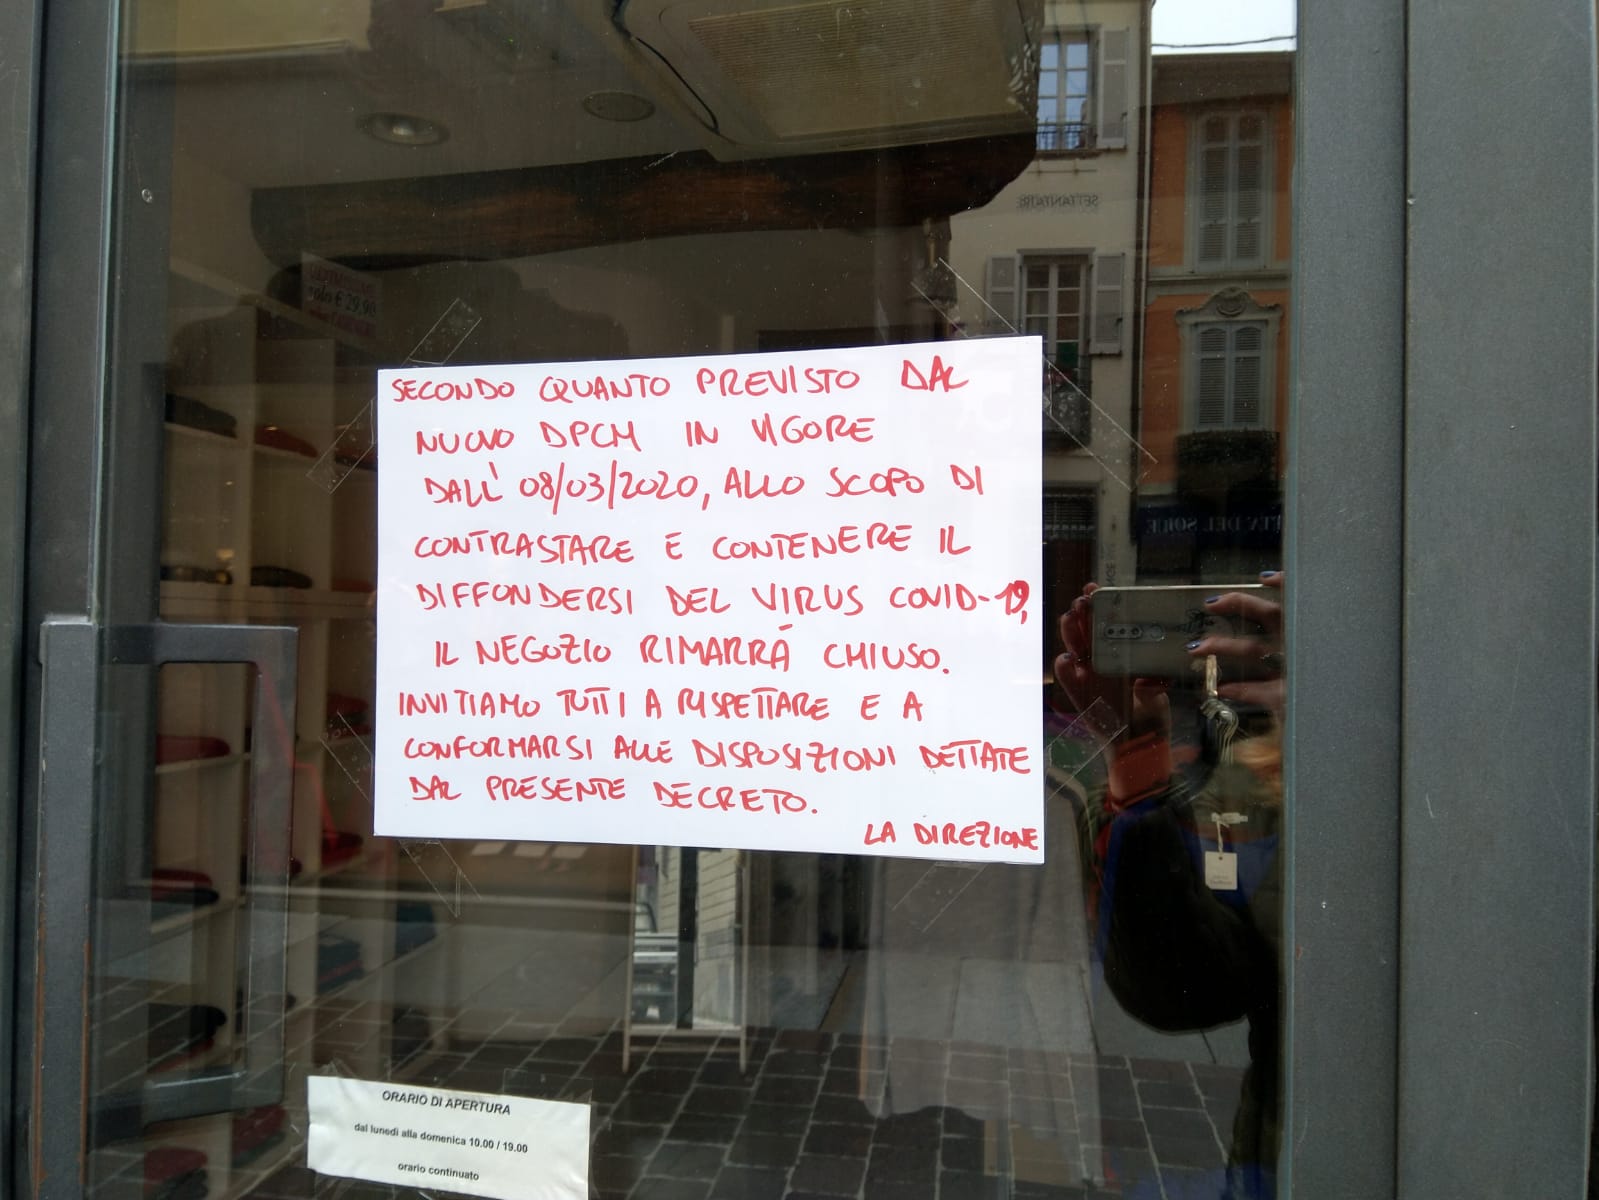 SETTANTATRE
solo € 29,90
SECONDO QUANTO PREVISTO DAL
NUOVO DPCM IN VIGORE
DALL' 08/03/2020, ALLO SCOPO DI
CONTRASTARE E CONTENERE IL
DIFFONDERSI DEL VIRUS COVID-19,
IL NEGOZIO RIMARRÁ CHIUSO.
INVITIAMO TUTTI A RISPETTARE E A
CONFORMARSI ALLE DISPOSIZIONI DETTATE
DAL PRESENTE DECRETO.
LA DIREZIONE
DEL SOLE
ORARIO DI APERTURA
dal lunedì alla domenica 10.00 / 19.00
orario continuato